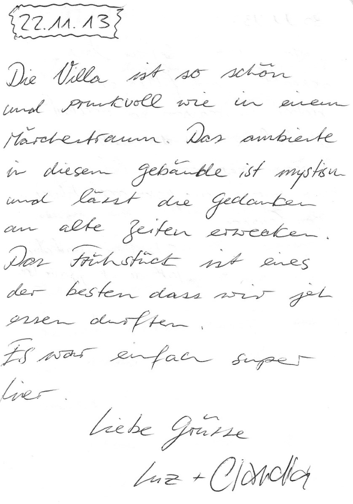 22.11.13
Die Villa ist so schön
und prunkvoll wie in einem
Märchentraum. Das ambiente
in diesem gebäude ist mystisch
und lässt die Gedanken
an alte Zeiten erwecken.
Das Frühstück ist eines
der besten dass wir je
essen durften.
Es war einfach super
hier.
Liebe Grüsse
Luz + Claudia